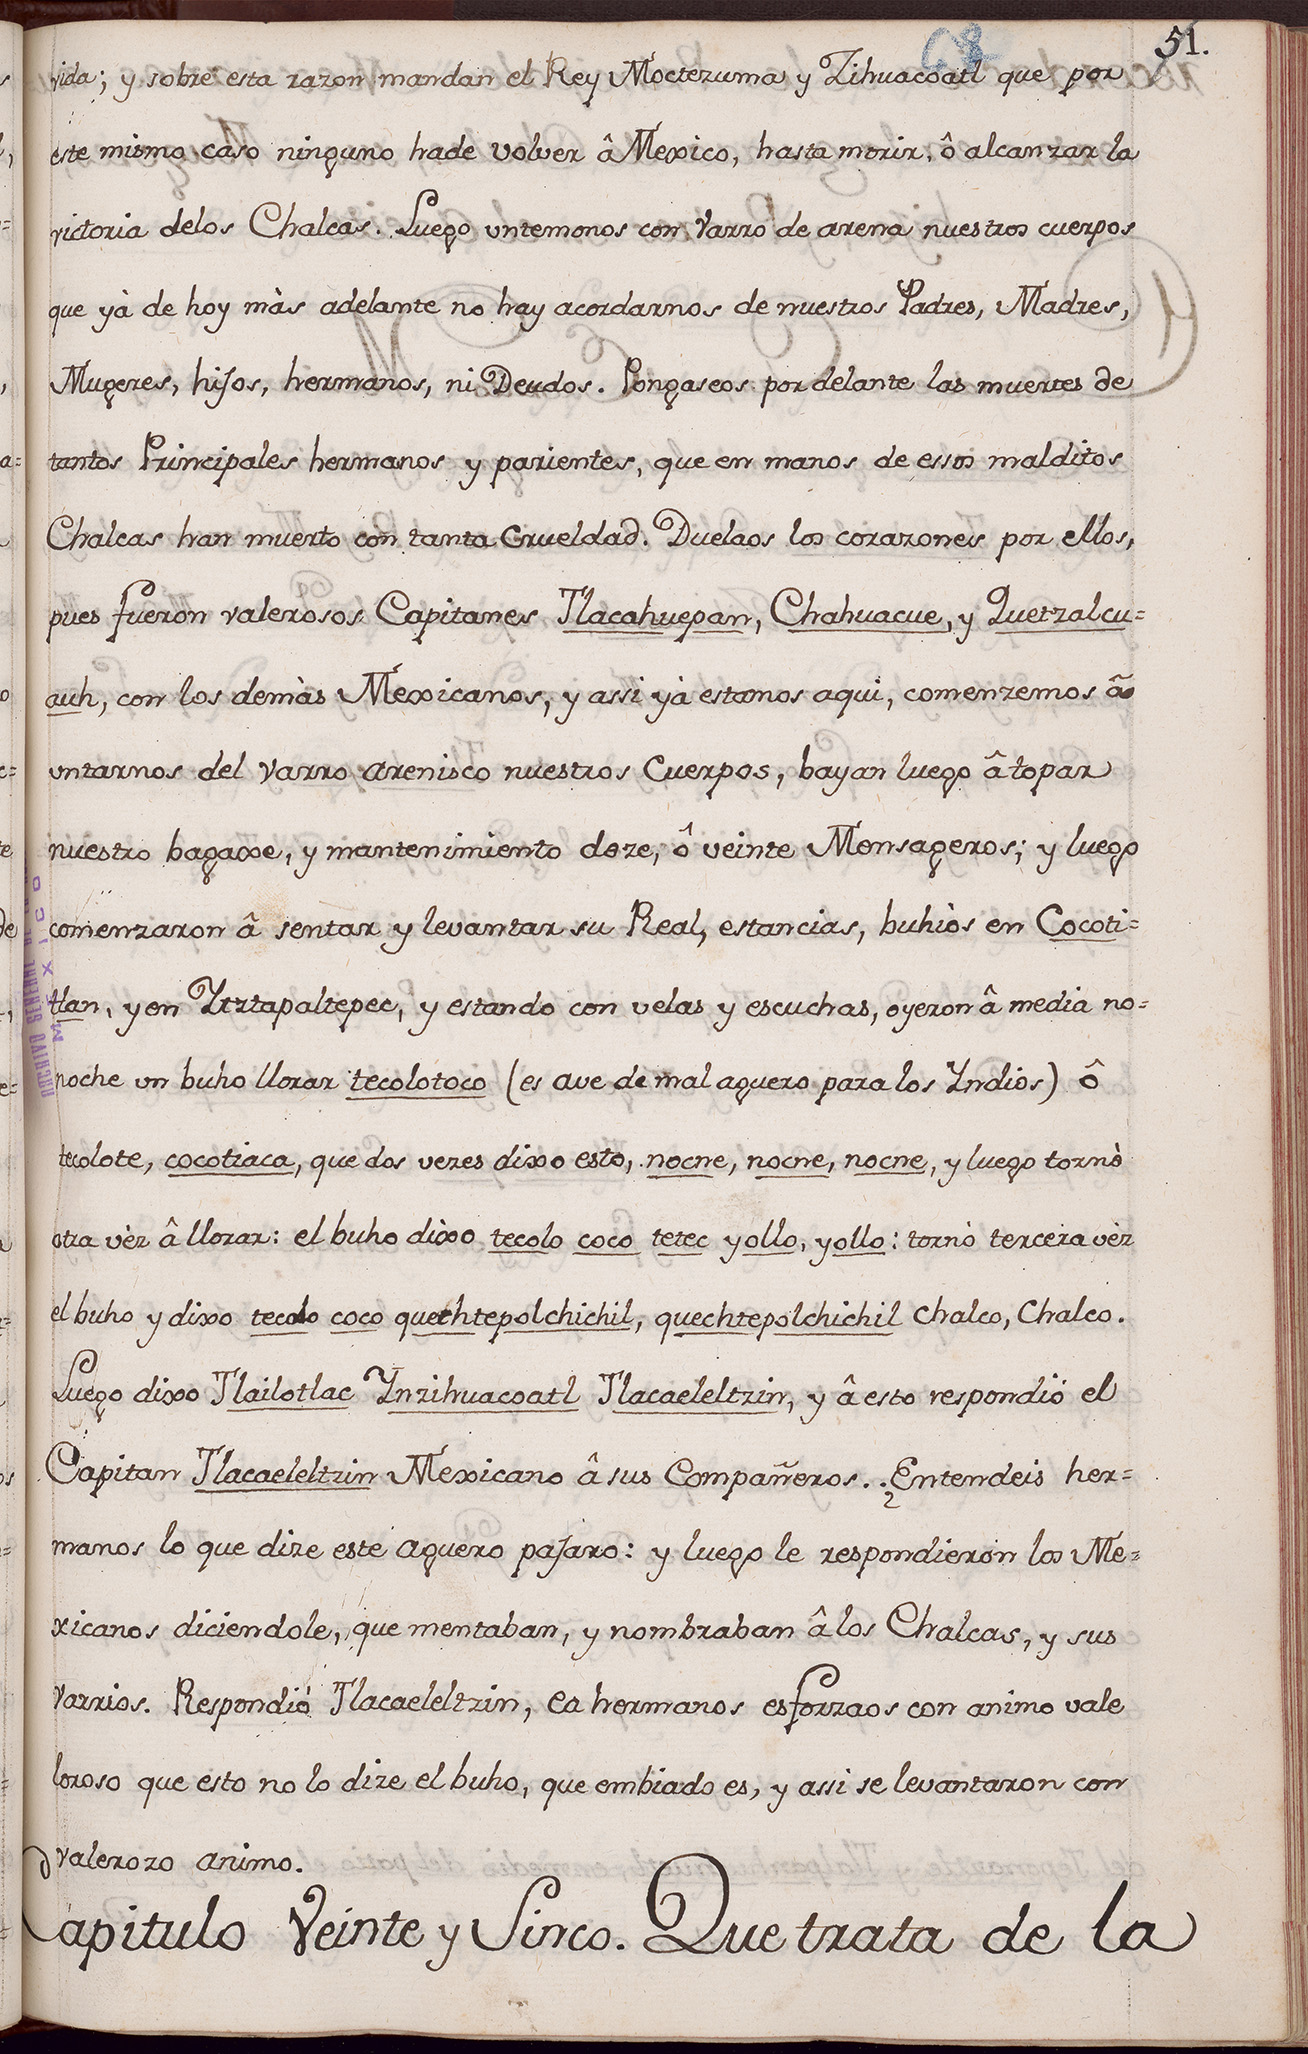 68
51.
vida; y sobre esta razon mandan el Rey Moctezuma y Zihuacoatl que por
este mismo caso ninguno hade volver â Mexico, hasta morir, ô alcanzar la
victoria delos Chalcas. Luego untemonos con varro de arena nuestros cuerpos
que yà de hoy màs adelante no hay acordarnos de nuestros Padres, Madres,
Mugeres, hijos, hermanos, ni Deudos. Pongaseos por delante las muertes de
tantos Principales hermanos y parientes, que en manos de essos malditos
Chalcas han muerto con tanta Crueldad. Duelaos los corazones por ellos,
pues fueron valerosos Capitanes Tlacahuepan, Chahuacue, y Quetzalcu=
auh, con los demàs Mexicanos, y assi yà estamos aqui, comenzemos â
untarnos del varro arenisco nuestros Cuerpos, bayan luego â topar
nuestro bagaxe, y mantenimiento doze, ô veinte Mensageros; y luego
comenzaron â sentar y levantar su Real, estancias, buhiòs en Cocoti=
tlan, y en Ytztapaltepec, y estando con velas y escuchas, oyeron â media no=
noche un buho llorar tecolotoco (es ave de mal aguero para los Yndios) ô
tecolote, cocotiaca, que dos vezes dixo esto, nocne, nocne, nocne, y luego tornò
otra vèz â llorar: el buho dixo tecolo coco tetec yollo, yollo: tornò tercera vèz
el buho y dixo tecolo coco quechtepolchichil, quechtepolchichil Chalco, Chalco.
Luego dixo Tlailotlac Ynzihuacoatl Tlacaeleltzin, y â esto respondió el
Capitan Tlacaeleltzin Mexicano â sus Compañeros. ¿Entendeis her=
manos lo que dize este aguero pajaro: y luego le respondieron los Me=
xicanos diciendole, que mentaban, y nombraban â los Chalcas, y sus
varrios. Respondió Tlacaeleltzin, ea hermanos esforzaos con animo vale
loroso que esto no lo dize el buho, que embiado es, y assi se levantaron con
valerozo animo.
Capitulo Veinte y Sinco. Que trata de la
ARCHIVO GENERAL
MEXICO